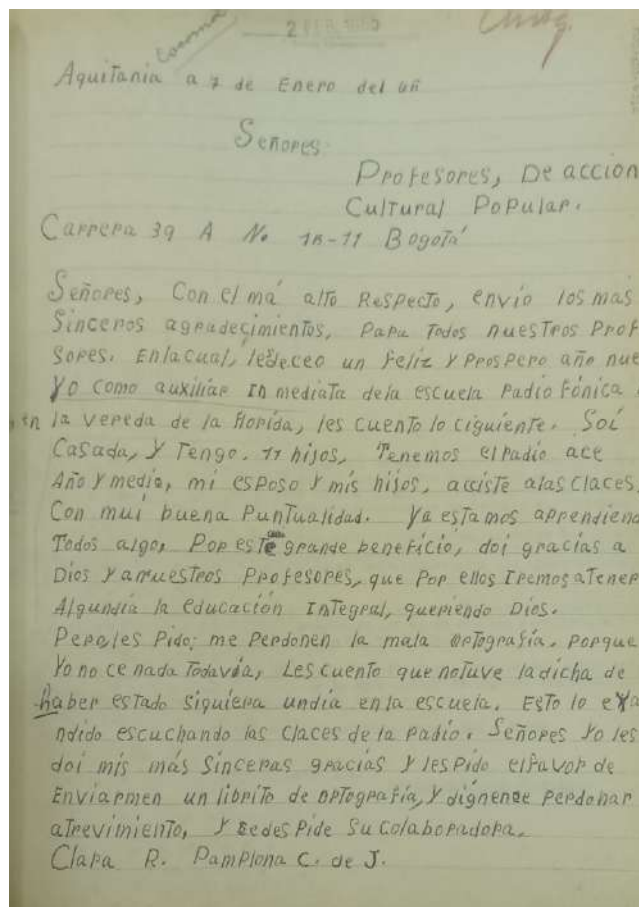 Aquitania a 7 de Enero del
Señores:
Profesores, De accion
Cultural Popular.
Carrera 39 A No. 15-11 Bogotá
Señores, Con el má alto Respecto, envío los más
Sinceros agradecimientos, Para Todos nuestros Prof
sores. Enlacual, ledeceo un feliz y Prospero año nue
Yo como auxiliar Inmediata dela escuela Radio Fónica
en la vereda de la florida, les cuento lo ciguiente. Soi
Casada, y Tengo. 11 hijos, Tenemos elradio ace
Año y medio, mi esposo y mis hijos, acciste alas Claces,
Con mui buena Puntualidad. Ya estamos aprendiend
Todos algo, Por este grande beneficio, doi gracias a
Dios y anuestros Profesores, que Por ellos Iremos atener
Algundía la educación Integral, queriendo Dios.
Pero, les Pido; me Perdonen la mala ortografía. Porque
Yo no ce nada Todavía, Les cuento que notuve ladicha de
haber estado siquiera undía enla escuela. Esto lo
ndido escuchando las Claces de la Radio. Señores Yo les
doi mis más Sinceras gracias y lespido elfavor de
Enviarmen un librito de ortografía, y dígnence Perdonar
atrevimiento, y sedesPide Su Colaboradora.
Clara R. Pamplona C. de J.